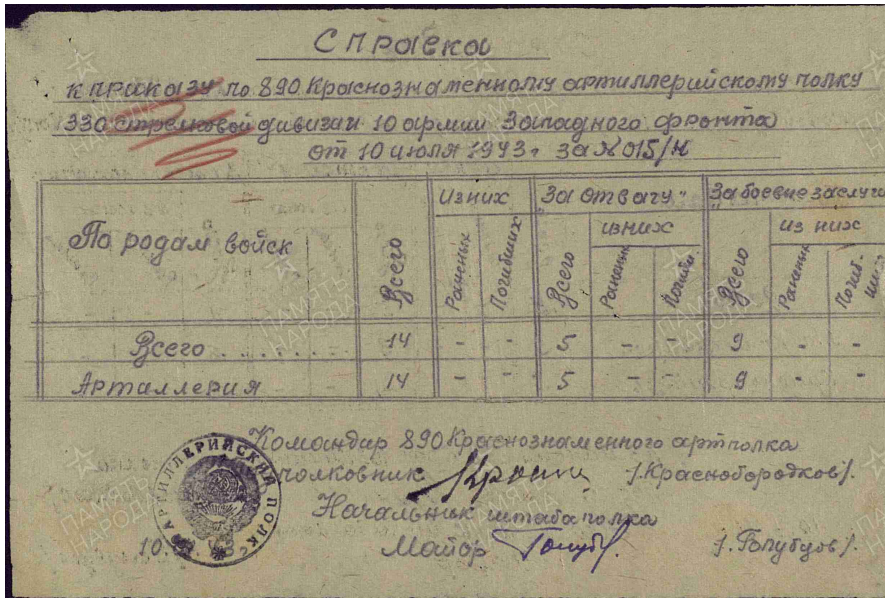 Справка
к приказу по 890 Краснознаменному артиллерийскому полку
330 стрелковой дивизии 10 армии Западного фронта
от 10 июля 1943 г за № 015/н
По родам войск
Всего
Из них
Раненых
Погибших
"За отвагу"
Всего
из них
Раненых
Погибш
"За боевые заслуги
Всего
из них
Раненых
Погиб-
ших
Всего . . . . . . . 14 - - 5 - - 9 - -
Артиллерия 14 - - 5 - - 9 - -
Командир 890 Краснознаменного артполка
полковник /.Краснобородков/.
Начальник штаба полка
Майор /.Голубцов/.
АРТИЛЛЕРИЙСКИЙ ПОЛК
ПАМЯТЬ
НАРОДА